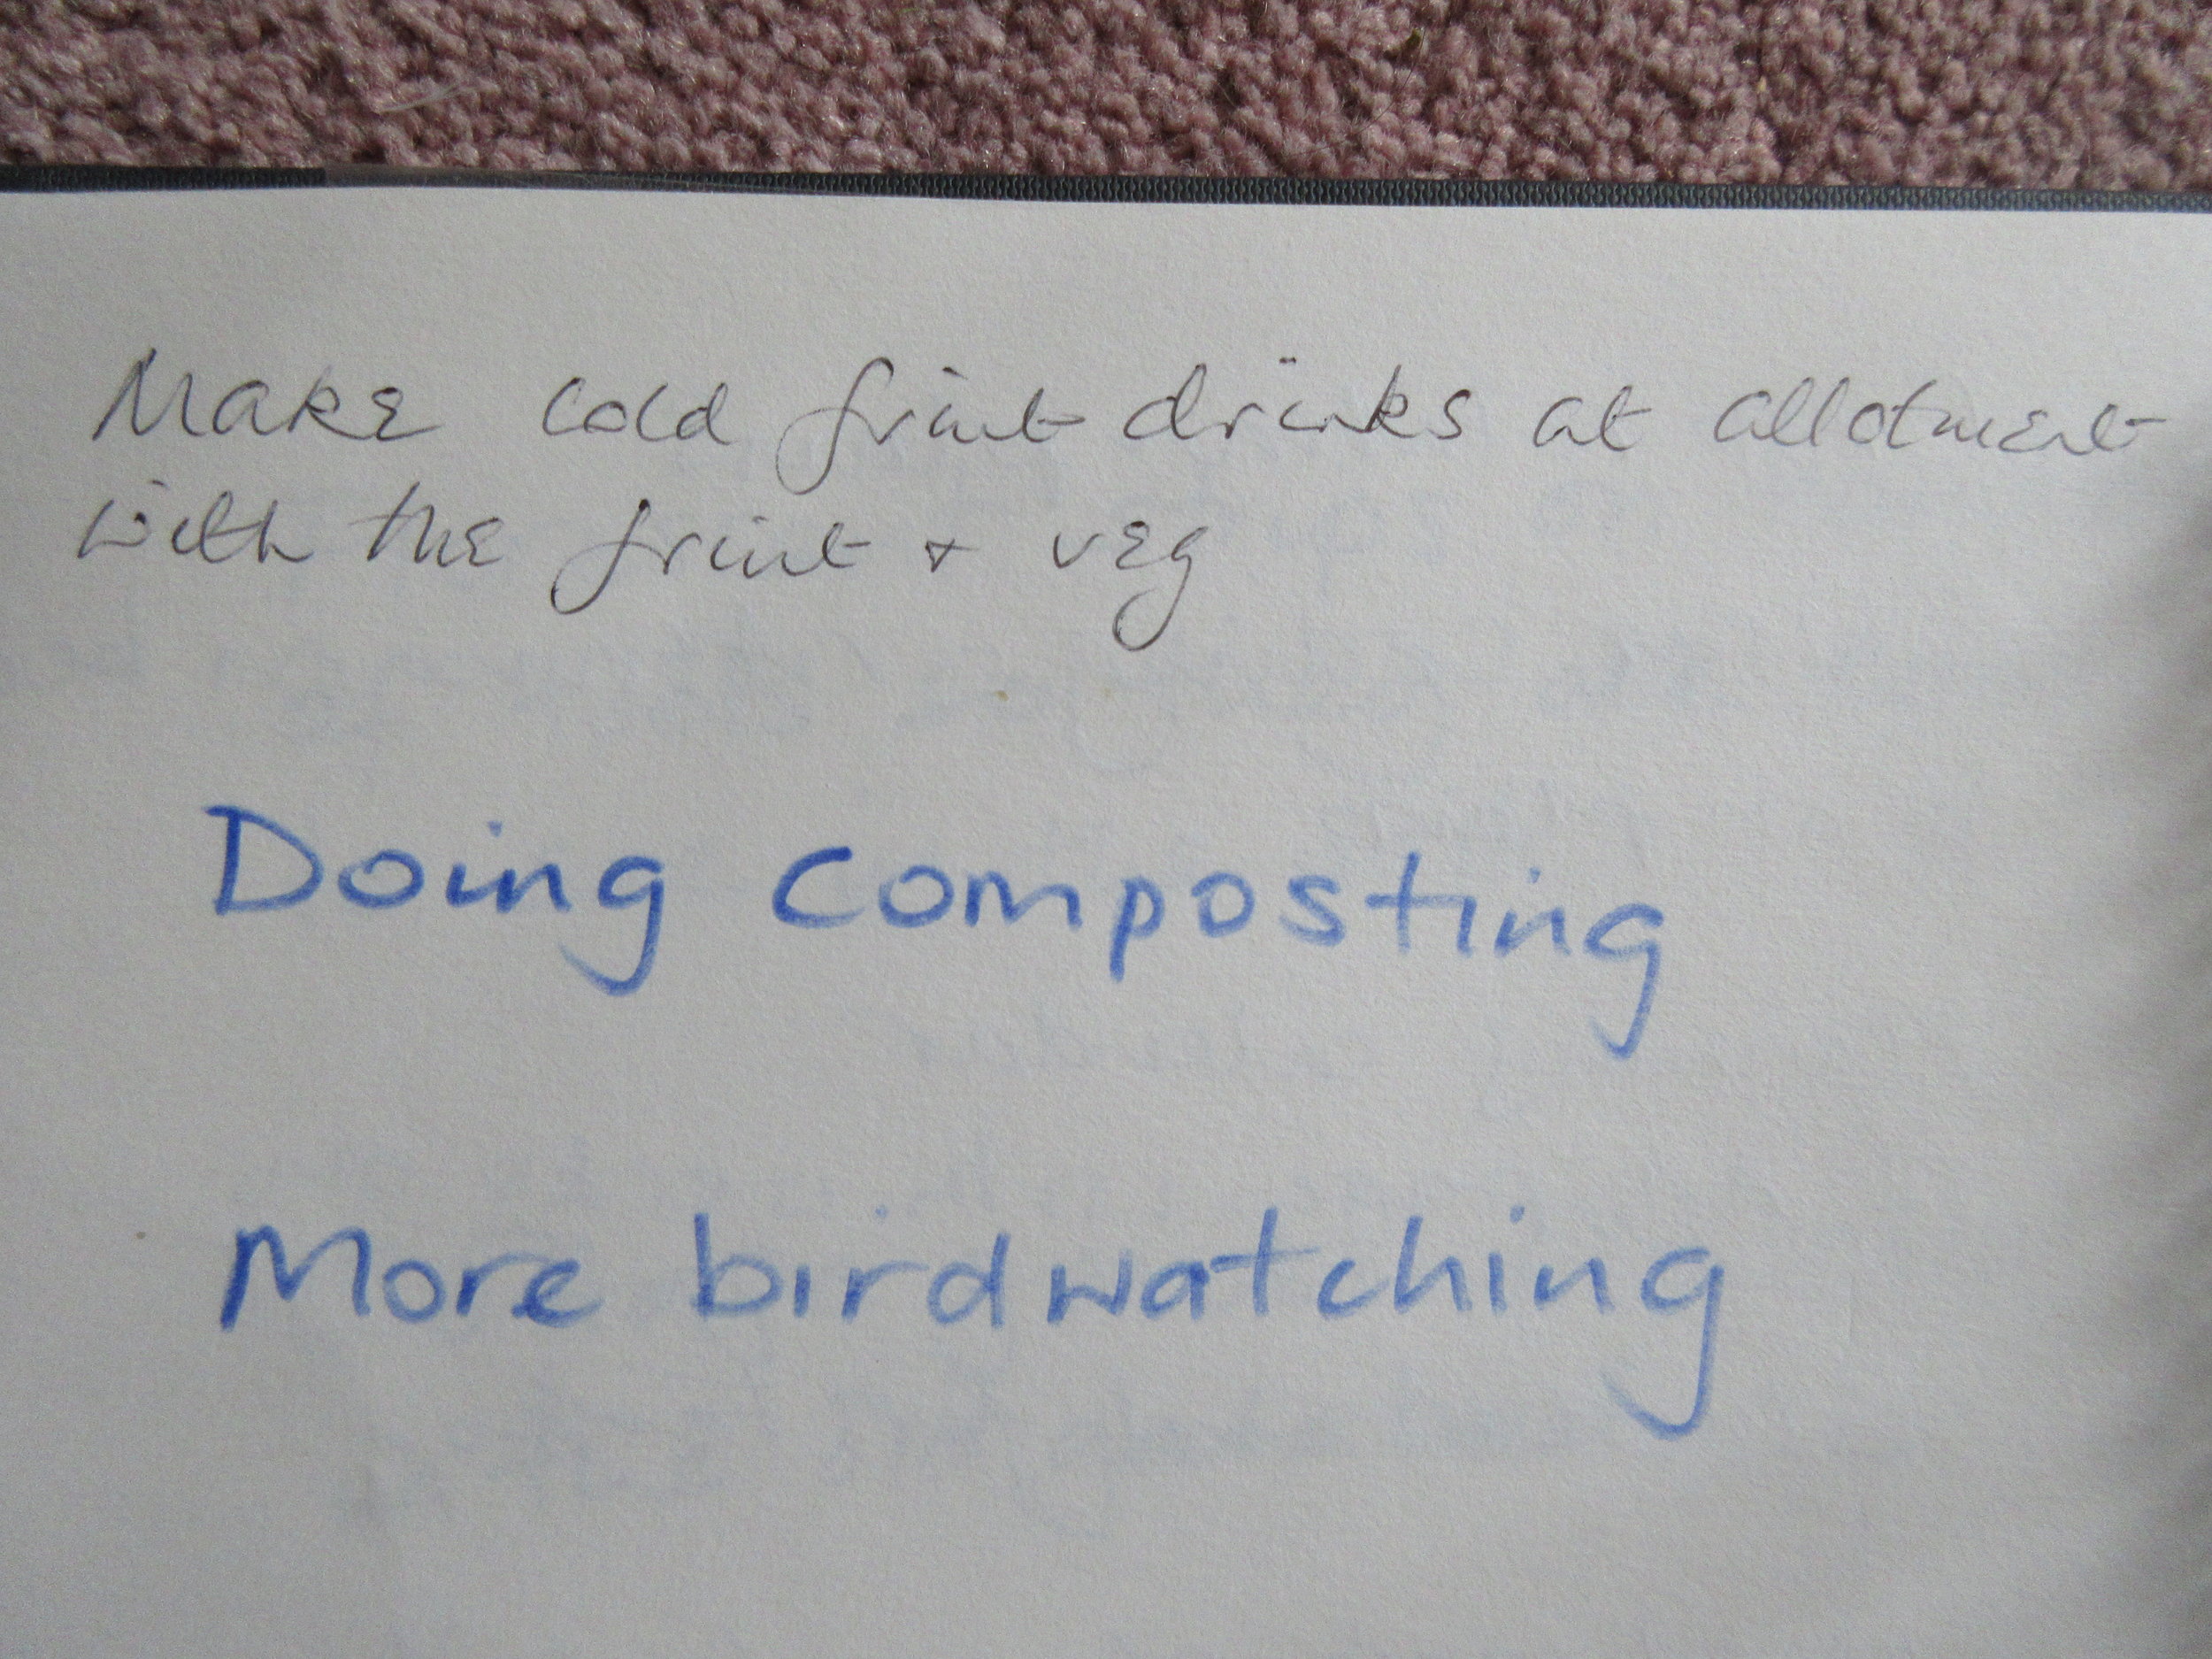 Make cold fruit drinks at allotment
with the fruit + veg
Doing composting
More birdwatching